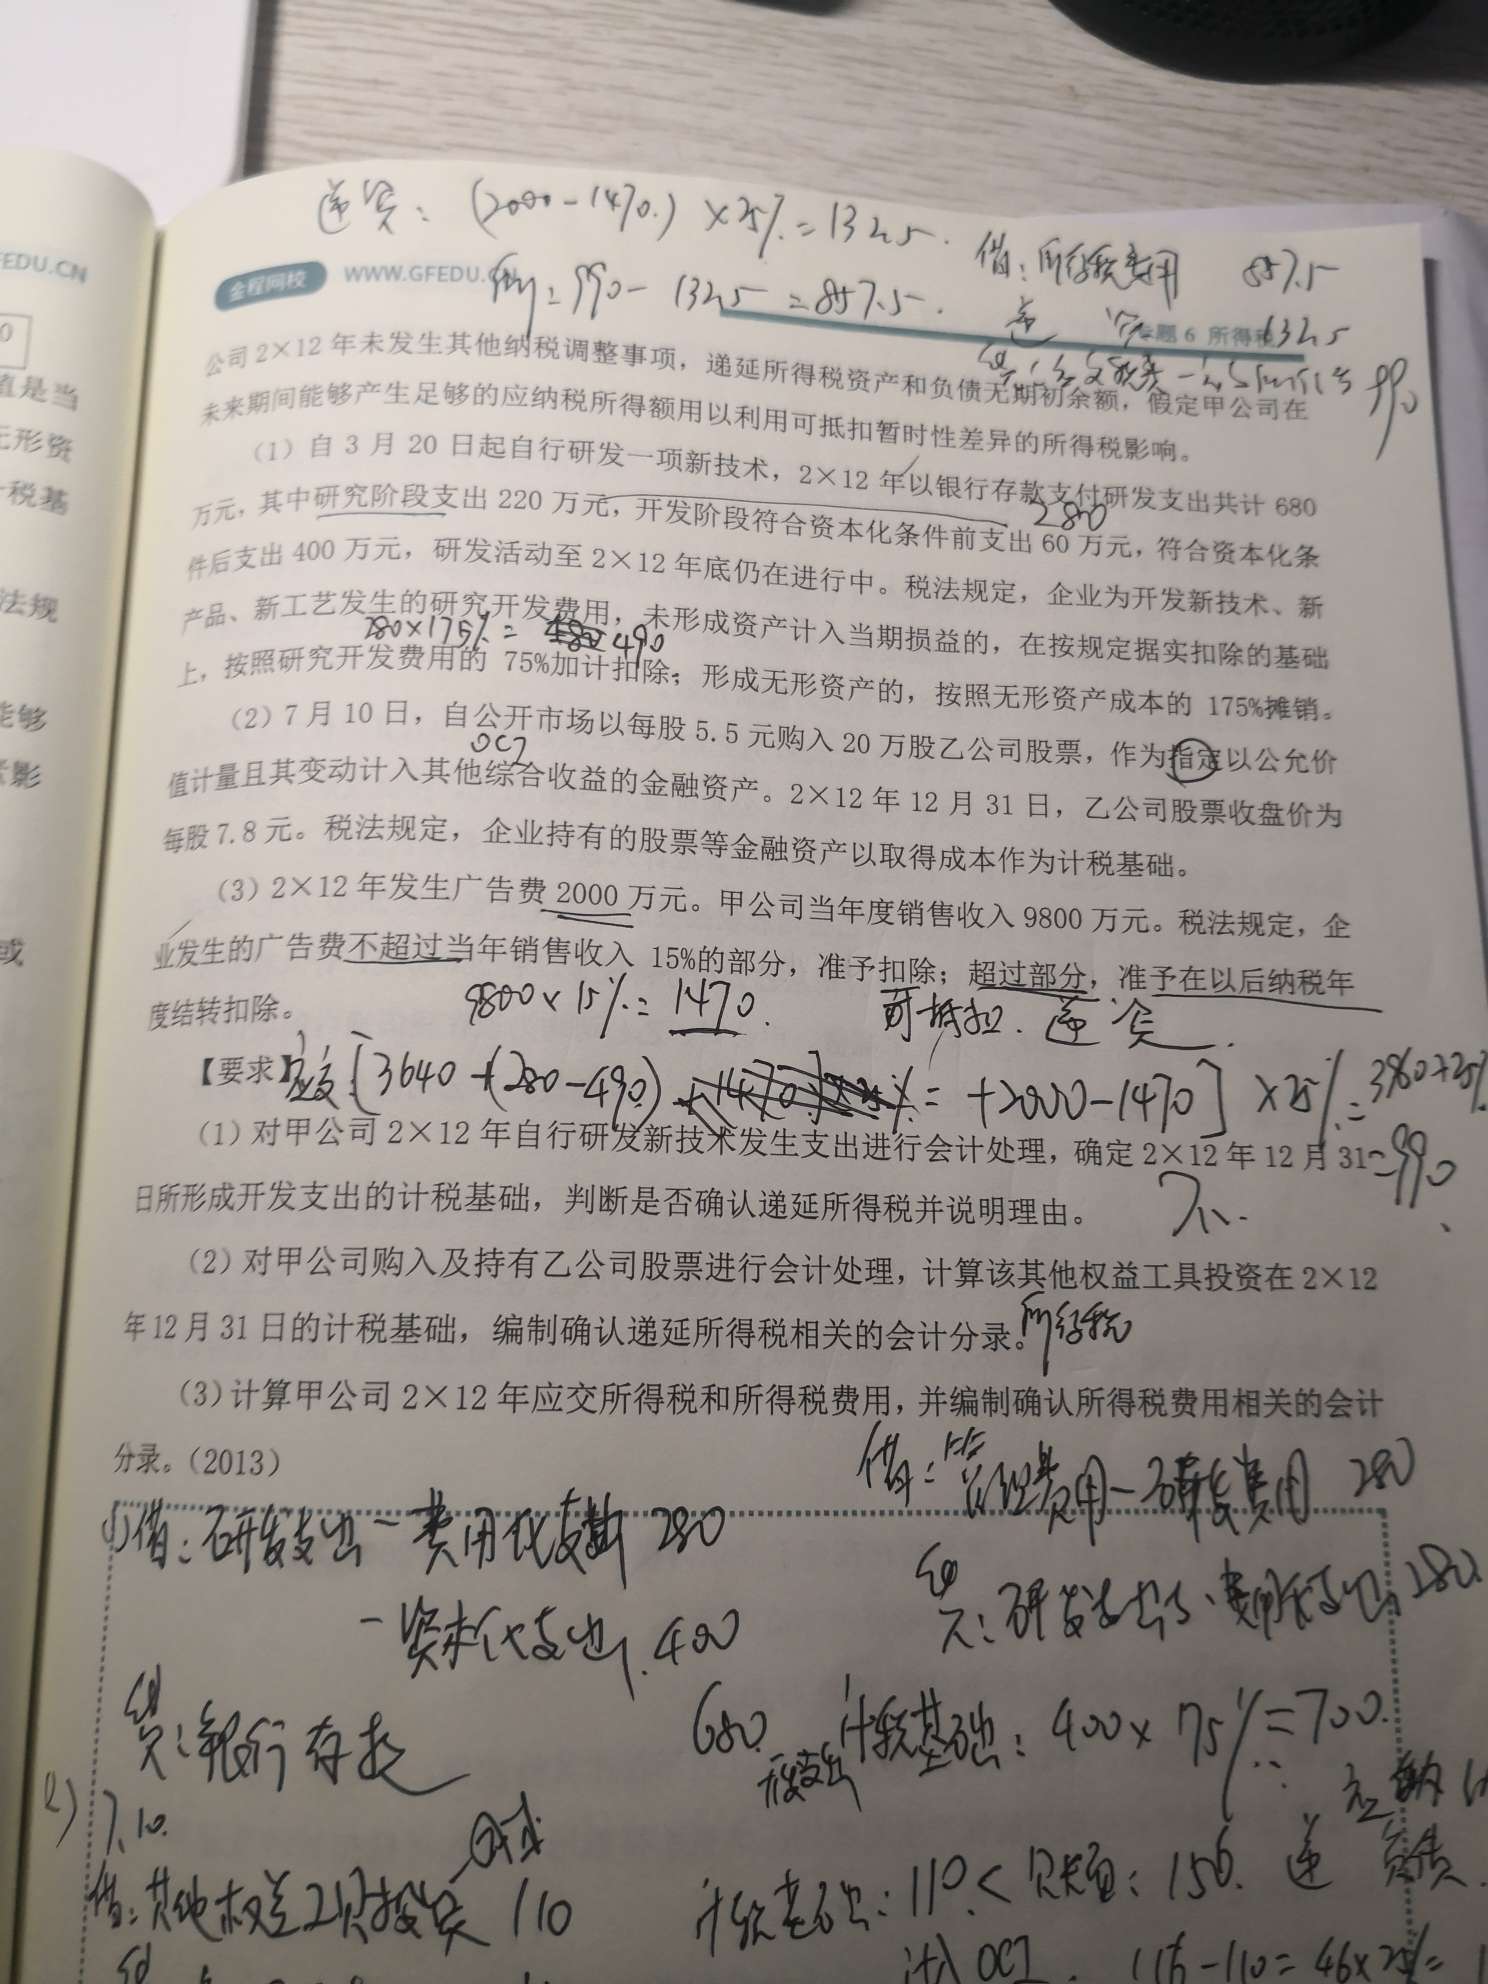 递资：(2000-1470.)×25%=132.5.
借：所得税费用 857.5
EDU.CN
金程网校 WWW.GFEDU.CN
=990-132.5=857.5.
递 资 132.5
专题 6 所得税
990
公司 2×12 年未发生其他纳税调整事项，递延所得税资产和负债无期初余额，假定甲公司在
未来期间能够产生足够的应纳税所得额用以利用可抵扣暂时性差异的所得税影响。
（1）自 3 月 20 日起自行研发一项新技术，2×12 年以银行存款支付研发支出共计 680
万元，其中研究阶段支出 220 万元，开发阶段符合资本化条件前支出 60 万元，符合资本化条
280
件后支出 400 万元，研发活动至 2×12 年底仍在进行中。税法规定，企业为开发新技术、新
产品、新工艺发生的研究开发费用，未形成资产计入当期损益的，在按规定据实扣除的基础
280×175%= 490
上，按照研究开发费用的 75%加计扣除；形成无形资产的，按照无形资产成本的 175%摊销。
（2）7 月 10 日，自公开市场以每股 5.5 元购入 20 万股乙公司股票，作为指定以公允价
OCI
值计量且其变动计入其他综合收益的金融资产。2×12 年 12 月 31 日，乙公司股票收盘价为
每股 7.8 元。税法规定，企业持有的股票等金融资产以取得成本作为计税基础。
（3）2×12 年发生广告费 2000 万元。甲公司当年度销售收入 9800 万元。税法规定，企
业发生的广告费不超过当年销售收入 15%的部分，准予扣除；超过部分，准予在以后纳税年
度结转扣除。 9800×15%=1470. 可抵扣. 递资.
【要求】应交：[3640+(280-490) +2000-1470]×25%=3960×25%
=990
（1）对甲公司 2×12 年自行研发新技术发生支出进行会计处理，确定 2×12 年 12 月 31
日所形成开发支出的计税基础，判断是否确认递延所得税并说明理由。 不.
（2）对甲公司购入及持有乙公司股票进行会计处理，计算该其他权益工具投资在 2×12
年 12 月 31 日的计税基础，编制确认递延所得税相关的会计分录。 所得税
（3）计算甲公司 2×12 年应交所得税和所得税费用，并编制确认所得税费用相关的会计
分录。（2013）
借：管理费用-研发费用 280
(1)借：研发支出-费用化支出 280
贷：研发支出-费用化支出 280.
-资本化支出 400
贷：银行存款 680.
开发支出计税基础：400×75%=700.
2) 7.10.
借：其他权益工具投资-成本 110
计税基础：110<账面：156. 递 负债.
计入 OCI. 156-110=46×25%=